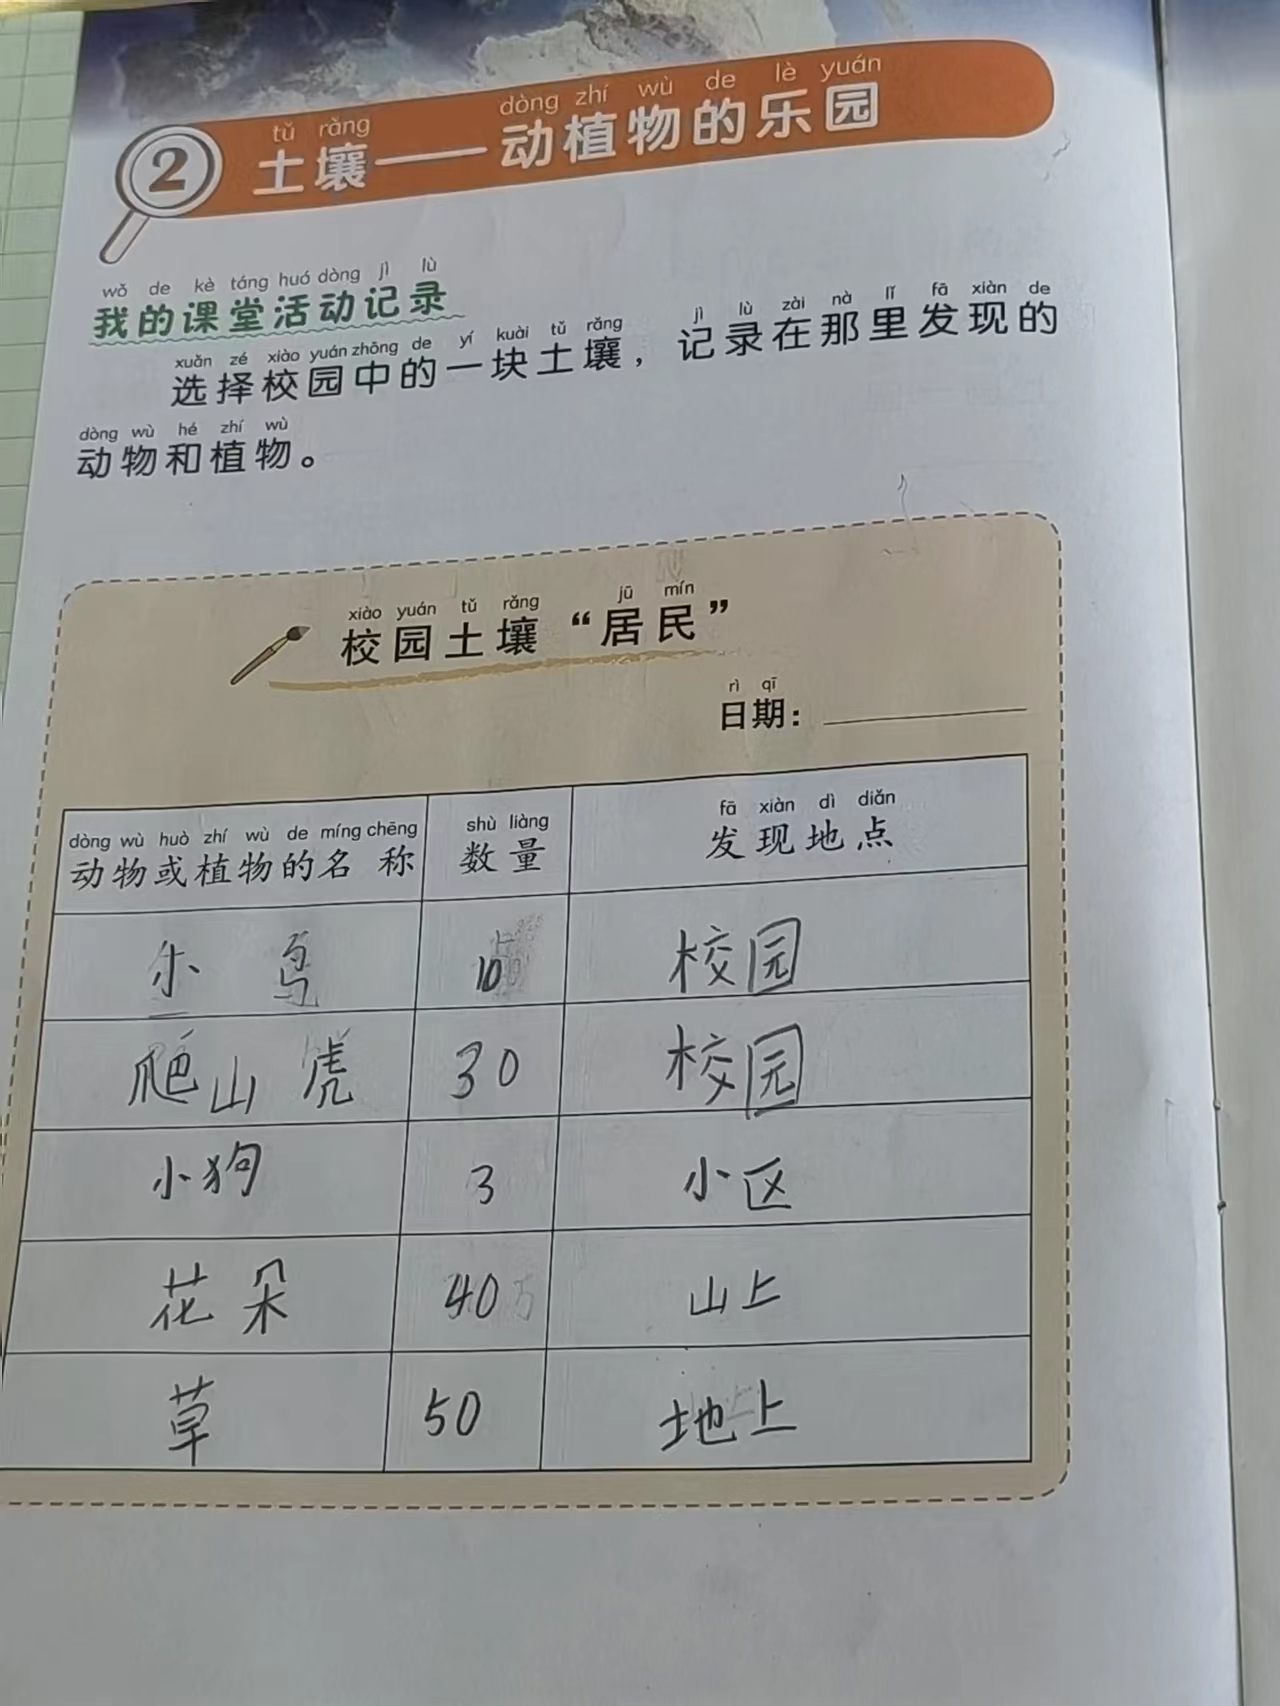 tǔ rǎng dòng zhí wù de lè yuán
2 土壤——动植物的乐园
wǒ de kè táng huó dòng jì lù
我的课堂活动记录
xuǎn zé xiào yuán zhōng de yí kuài tǔ rǎng jì lù zài nà lǐ fā xiàn de
选择校园中的一块土壤，记录在那里发现的
dòng wù hé zhí wù
动物和植物。
xiào yuán tǔ rǎng jū mín
校园土壤“居民”
rì qī
日期：
dòng wù huò zhí wù de míng chēng shù liàng fā xiàn dì diǎn
动物或植物的名称 数量 发现地点
小鸟 10 校园
爬山虎 30 校园
小狗 3 小区
花朵 40 山上
草 50 地上